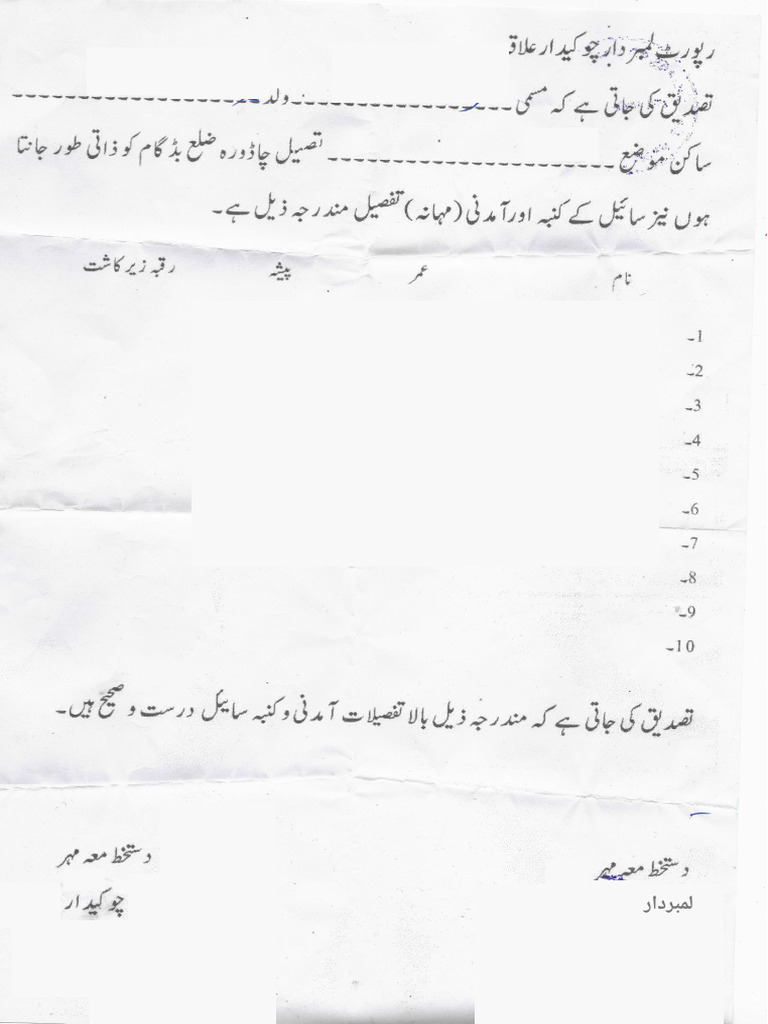 رپورٹ لمبردار چوکیدار علاقہ
تصدیق کی جاتی ہے کہ مسمی ---------------- ولد -------------------
ساکن موضع ---------------------- تصیل چاڈورہ ضلع بڈگام کو ذاتی طور جانتا
ہوں نیز سائیل کے کنبہ اور آمدنی (مہانہ) تفصیل مندرجہ ذیل ہے۔
نام عمر پیشہ رقبہ زیر کاشت
1۔
2۔
3۔
4۔
5۔
6۔
7۔
8۔
9۔
10۔
تصدیق کی جاتی ہے کہ مندرجہ ذیل بالا تفصیلات آمدنی و کنبہ سایئل درست و صحیح ہیں۔
دستخط معہ مہر دستخط معہ مہر
لمبردار چوکیدار